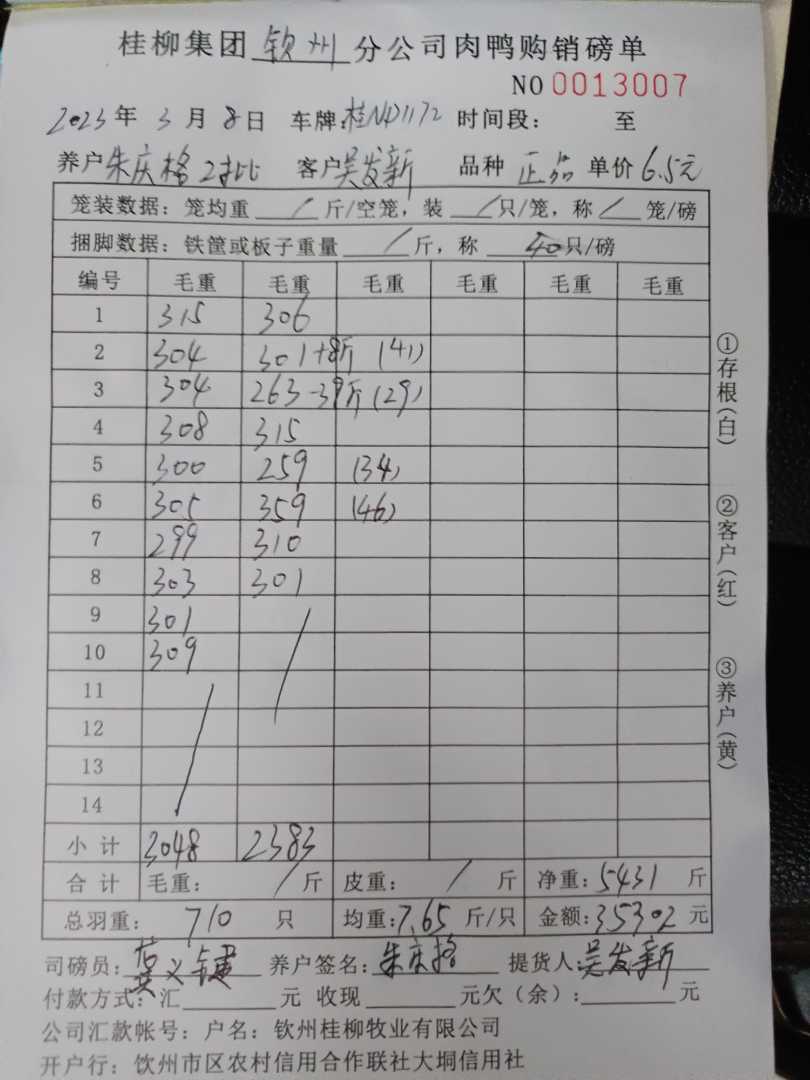 桂柳集团 钦州 分公司肉鸭购销磅单
NO 0013007
2023年 3月 8日 车牌:桂ND1172 时间段: 至
养户 朱庆格 2批 客户 吴发新 品种 正品 单价 6.5元
笼装数据:笼均重 / 斤/空笼,装 / 只/笼,称 / 笼/磅
捆脚数据:铁筐或板子重量 / 斤,称 40 只/磅
编号 毛重 毛重 毛重 毛重 毛重 毛重
1 315 306
2 304 301+8斤 (41)
3 304 263-39斤 (29)
4 308 315
5 300 259 (34)
6 305 359 (46)
7 299 310
8 303 301
9 301 /
10 309
11 /
12
13
14
小计 3048 2383
合计 毛重: / 斤 皮重: / 斤 净重:5431 斤
总羽重: 710 只 均重:7.65 斤/只 金额:35302 元
司磅员: 义键 养户签名:朱庆格 提货人:吴发新
付款方式:汇 元 收现 元欠(余): 元
公司汇款帐号:户名:钦州桂柳牧业有限公司
开户行:钦州市区农村信用合作联社大垌信用社
①存根(白)
②客户(红)
③养户(黄)